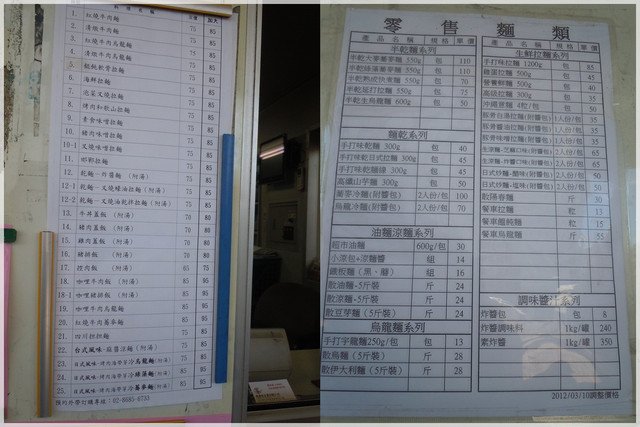 品名 加大
1. 紅燒牛肉麵 75 85
2. 清燉牛肉麵 75 85
3. 紅燒牛肉烏龍麵 75 85
4. 清燉牛肉烏龍麵 75 85
5. 75 85
6. 海鮮拉麵 75 85
7. 泡菜叉燒拉麵 75 85
8. 烤肉和歌山拉麵 75 85
9. 素食味噌拉麵 75 85
10. 豬肉味噌拉麵 75 85
10-1 叉燒味噌拉麵 75 85
11. 邯鄲拉麵 75 85
12. 乾麵－炸醬麵 (附湯) 75 85
12-1 乾麵－叉燒蠔油拉麵 (附湯) 75 85
12-2 乾麵－叉燒油乾拌拉麵 (附湯) 75 85
13. 牛丼蓋飯 (附湯) 70 80
14. 豬肉蓋飯 (附湯) 70 80
15. 雞肉蓋飯 (附湯) 70 80
16. 豬排飯 (附湯) 70 80
17. 控肉飯 (附湯) 65 75
18. 咖哩牛肉飯 (附湯) 85 95
18-1 咖哩豬排飯 (附湯) 85 95
19. 咖哩牛肉烏龍麵 85 95
20. 紅燒牛肉蕎麥麵 85 95
21. 四川担担麵 75 85
22. 台式風味-麻醬涼麵(附湯) 75 85
23. 日式風味-烤肉海帶芽冷烏龍麵(附湯) 75 85
24. 日式風味-烤肉海帶芽冷綠藻麵(附湯) 85 95
25. 日式風味-烤肉海帶芽冷蕎麥麵(附湯) 85 95
預約外帶訂購專線：02-8685-6733
零售麵類
產品名稱 規格 單價
半乾麵系列
半乾大麥蕎麥麵 550g 包 110
半乾綠藻蕎麥麵 550g 包 110
半乾熟成快煮麵 550g 包 70
半乾延打拉麵 550g 包 75
半乾生烏龍麵 600g 包 50
麵乾系列
手打味乾麵 300g 包 40
手打味乾日式拉麵 300g 包 45
手打味乾麵線 300g 包 45
高纖山芋麵 300g 包 50
蕎麥冷麵(附醬包) 2人份/包 100
烏龍冷麵(附醬包) 2人份/包 70
油麵涼麵系列
超市油麵 600g/包 30
小涼包+涼麵醬 組 14
鐵板麵(黑、蘑) 組 16
散油麵-5斤裝 斤 24
散涼麵-5斤裝 斤 24
散豆芽麵(5斤裝) 斤 24
烏龍麵系列
手打宇龍麵250g/包 包 13
散烏麵(5斤裝) 斤 28
散伊大利麵(5斤裝) 斤 28
產品名稱 規格 單價
生鮮拉麵系列
手打味拉麵 1200g 包 85
雞蛋拉麵 500g 包 45
營養鮮麵 500g 包 40
高級拉麵 300g 包 35
沖繩蕎麵 4粒/包 包 50
豚骨白湯拉麵(附醬包) 1人份/包 35
豚骨醬油拉麵(附醬包) 1人份/包 35
豚骨味噌拉麵(附醬包) 1人份/包 35
生涼麵-芝麻口味(附醬包) 2人份/包 65
生涼麵-炸醬口味(附醬包) 2人份/包 65
日式炒麵-醋味(附醬包) 2人份/包 50
日式炒麵-塩味(附醬包) 2人份/包 50
散陽春麵 斤 30
餐車拉麵 粒 13
餐車饂飩麵 粒 15
餐車烏龍麵 斤 55
調味醬汁系列
炸醬包 包 8
炸醬調味料 1kg/罐 240
素炸醬 1kg/罐 350
2012/03/10調整價格